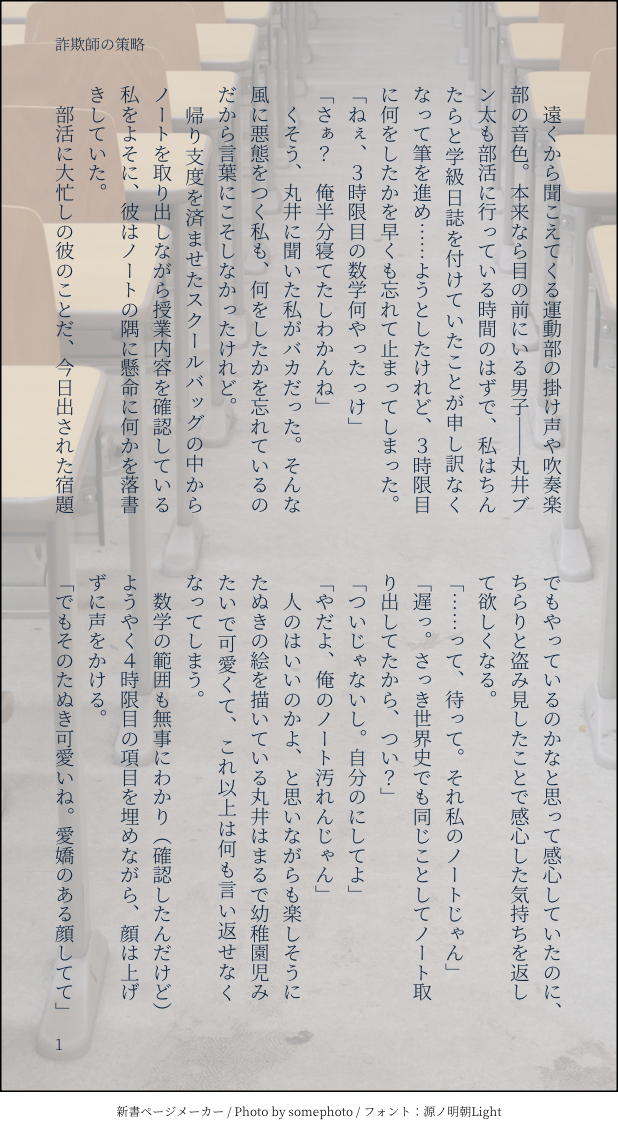 詐欺師の策略
　遠くから聞こえてくる運動部の掛け声や吹奏楽
部の音色。本来なら目の前にいる男子――丸井ブ
ン太も部活に行っている時間のはずで、私はちん
たらと学級日誌を付けていたことが申し訳なく
なって筆を進め……ようとしたけれど、３時限目
に何をしたかを早くも忘れて止まってしまった。
「ねぇ、３時限目の数学何やったっけ」
「さぁ？　俺半分寝てたしわかんね」
　くそう、丸井に聞いた私がバカだった。そんな
風に悪態をつく私も、何をしたかを忘れているの
だから言葉にこそしなかったけれど。
　帰り支度を済ませたスクールバッグの中から
ノートを取り出しながら授業内容を確認している
私をよそに、彼はノートの隅に懸命に何かを落書
きしていた。
　部活に大忙しの彼のことだ、今日出された宿題
でもやっているのかなと思って感心していたのに、
ちらりと盗み見したことで感心した気持ちを返し
て欲しくなる。
「……って、待って。それ私のノートじゃん」
「遅っ。さっき世界史でも同じことしてノート取
り出してたから、つい？」
「ついじゃないし。自分のにしてよ」
「やだよ、俺のノート汚れんじゃん」
　人のはいいのかよ、と思いながらも楽しそうに
たぬきの絵を描いている丸井はまるで幼稚園児み
たいで可愛くて、これ以上は何も言い返せなく
なってしまう。
　数学の範囲も無事にわかり（確認したんだけど）
ようやく４時限目の項目を埋めながら、顔は上げ
ずに声をかける。
「でもそのたぬき可愛いね。愛嬌のある顔してて」
1
新書ページメーカー / Photo by somephoto / フォント：源ノ明朝Light